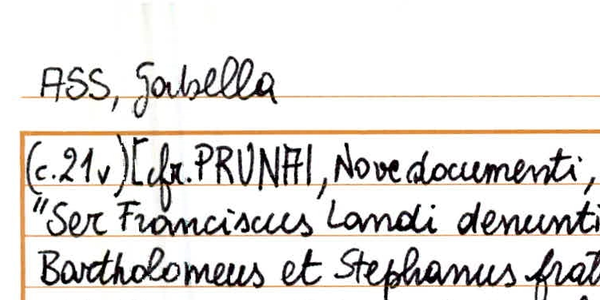 ASS, Gabella
(c.21v)[cfr. PRUNAI, Nove documenti,
"Ser Franciscus Landi denunti
Bartholomeus et Stephanus frat